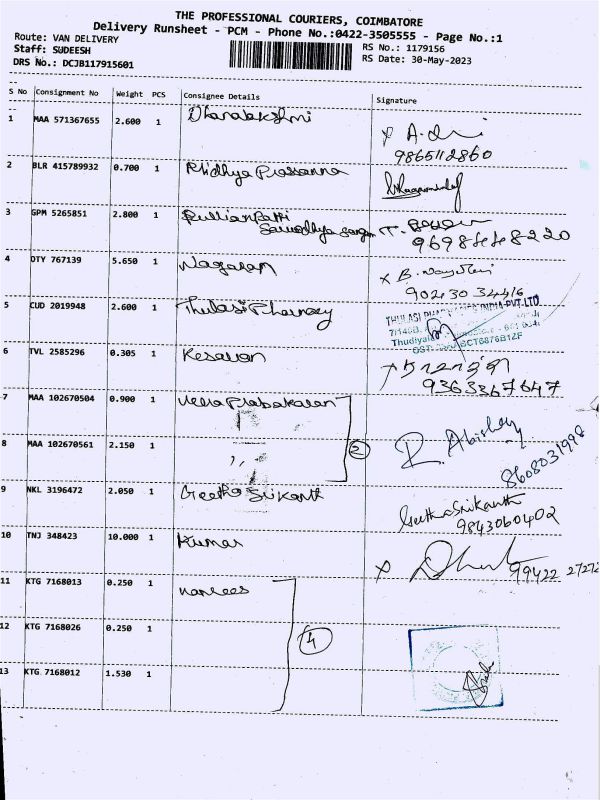 THE PROFESSIONAL COURIERS, COIMBATORE
Delivery Runsheet - PCM - Phone No.:0422-3505555 - Page No.:1
Route: VAN DELIVERY
RS No.: 1179156
Staff: SUDEESH
RS Date: 30-May-2023
DRS No.: DCJB117915601
S No Consignment No Weight PCS Consignee Details Signature
1 MAA 571367655 2.600 1 Dhanalakshmi
9865112860
2 BLR 415789932 0.700 1 Rhidhya Prasanna
3 GPM 5265851 2.800 1
9698448220
4 OTY 767139 5.650 1 Nagaran
5 CUD 2019948 2.600 1 Thulasi Pharmacy
6 TVL 2585296 0.305 1 Kesavan
9363367647
7 MAA 102670504 0.900 1 Veera Prabakaran
8 MAA 102670561 2.150 1 2 R. Abishey
8608031998
9 NKL 3196472 2.050 1 Geetha Srikanth Geetha Srikanth
9843060402
10 TNJ 348423 10.000 1 Kumar
99422 27272
11 KTG 7168013 0.250 1
12 KTG 7168026 0.250 1 4
13 KTG 7168012 1.530 1